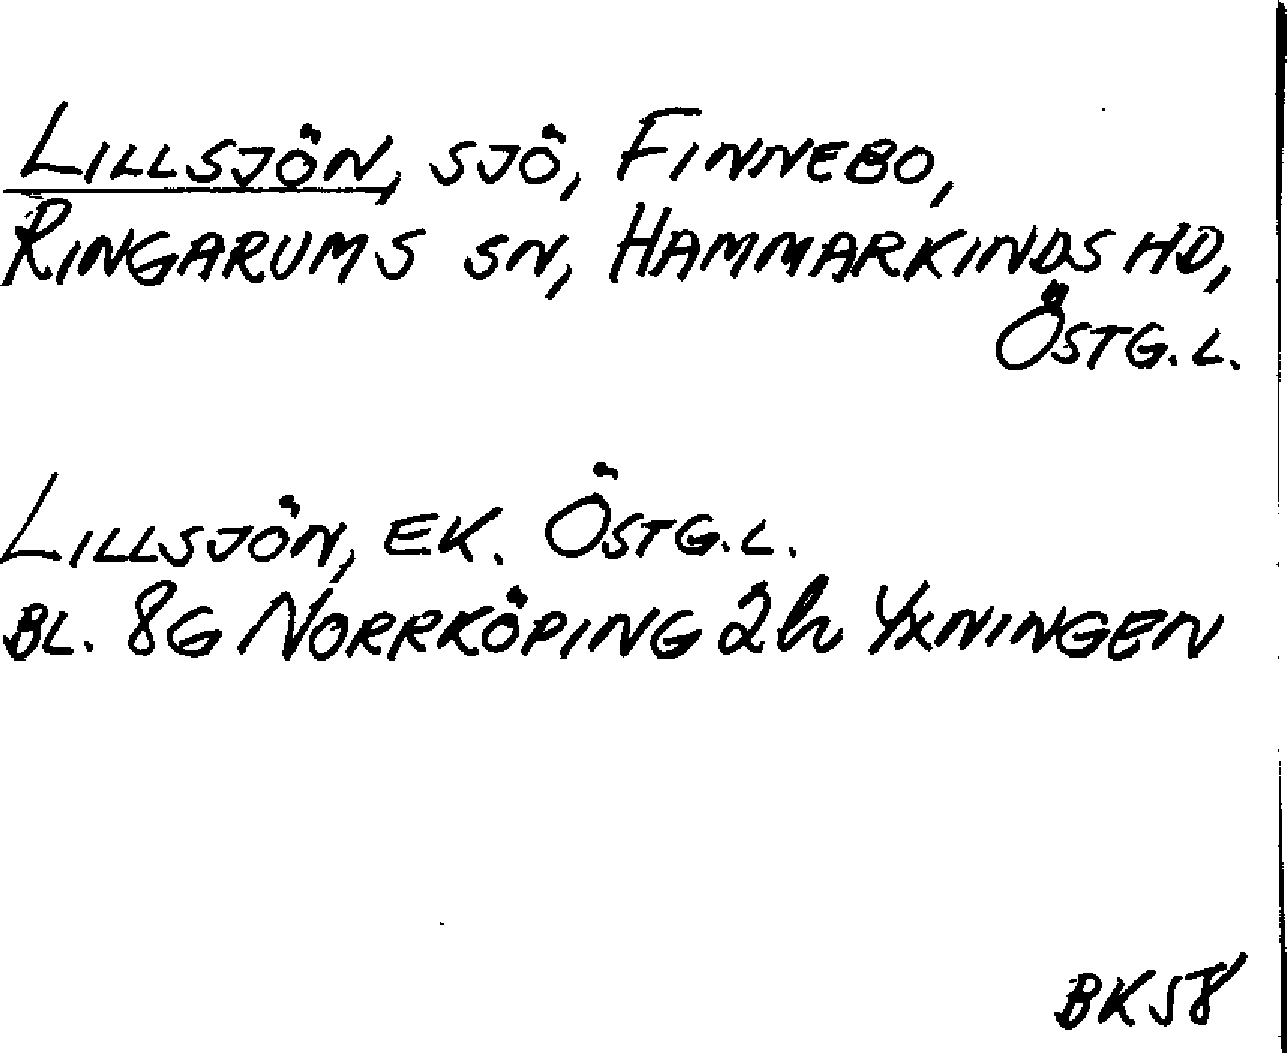 LILLSJÖN, SJÖ, FINNEBO,
RINGARUMS SN, HAMMARKINDS HD,
ÖSTG.L.
LILLSJÖN, EK. ÖSTG.L.
BL. 8G NORRKÖPING 2h YXNINGEN
BK58